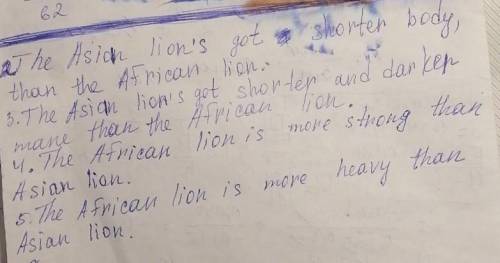 62
2. The Asian lion's got shorter body,
than the African lion.
3. The Asian lion's got shorter and darker
mane than the African lion.
4. The African lion is more strong than
Asian lion.
5. The African lion is more heavy than
Asian lion.